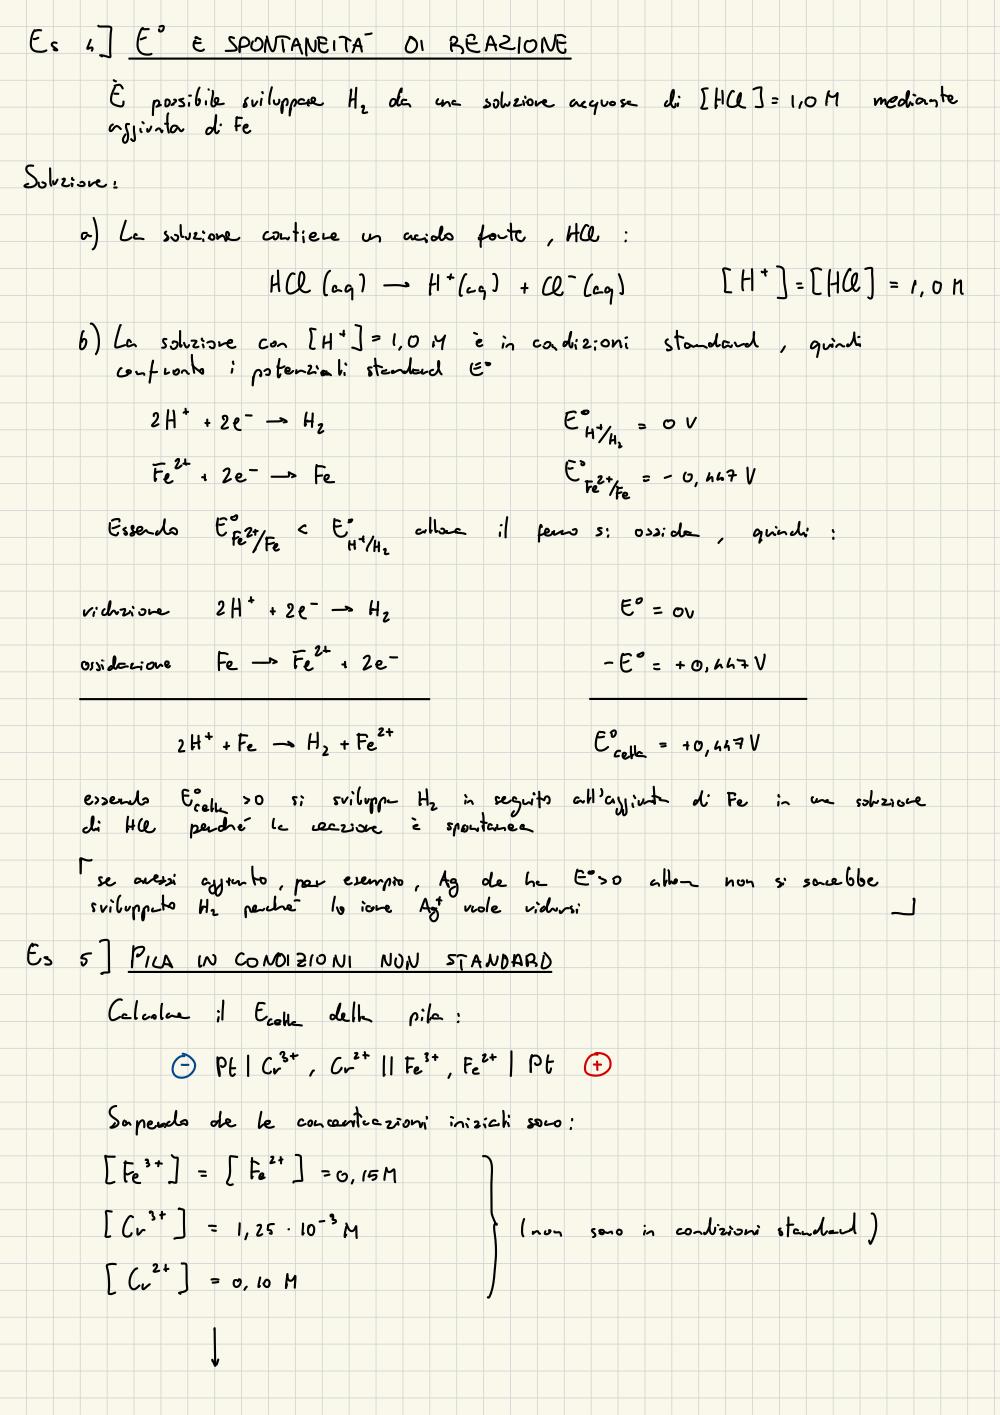 Es 4] E° E SPONTANEITÀ DI REAZIONE
È possibile sviluppare H₂ da una soluzione acquosa di [HCl] = 1,0 M mediante
aggiunta di Fe
Soluzione:
a) La soluzione contiene un acido forte, HCl :
HCl (aq) → H⁺(aq) + Cl⁻(aq) [H⁺] = [HCl] = 1,0 M
b) La soluzione con [H⁺] = 1,0 M è in condizioni standard, quindi
confronto i potenziali standard E°
2H⁺ + 2e⁻ → H₂ E°H⁺/H₂ = 0 V
Fe²⁺ + 2e⁻ → Fe E°Fe²⁺/Fe = - 0,447 V
Essendo E°Fe²⁺/Fe < E°H⁺/H₂ allora il ferro si ossida, quindi :
riduzione 2H⁺ + 2e⁻ → H₂ E° = 0V
ossidazione Fe → Fe²⁺ + 2e⁻ -E° = +0,447 V
2H⁺ + Fe → H₂ + Fe²⁺ E°cella = +0,447 V
essendo E°cella >0 si sviluppa H₂ in seguito all'aggiunta di Fe in una soluzione
di HCl perché la reazione è spontanea
se avessi aggiunto, per esempio, Ag che ha E°>0 allora non si sarebbe
sviluppato H₂ perché lo ione Ag⁺ vuole ridursi
Es 5] PILA IN CONDIZIONI NON STANDARD
Calcolare il Ecella della pila :
⊖ Pt | Cr³⁺, Cr²⁺ || Fe³⁺, Fe²⁺ | Pt ⊕
Sapendo che le concentrazioni iniziali sono :
[Fe³⁺] = [Fe²⁺] = 0,15 M
[Cr³⁺] = 1,25 · 10⁻³ M (non sono in condizioni standard)
[Cr²⁺] = 0,10 M
↓